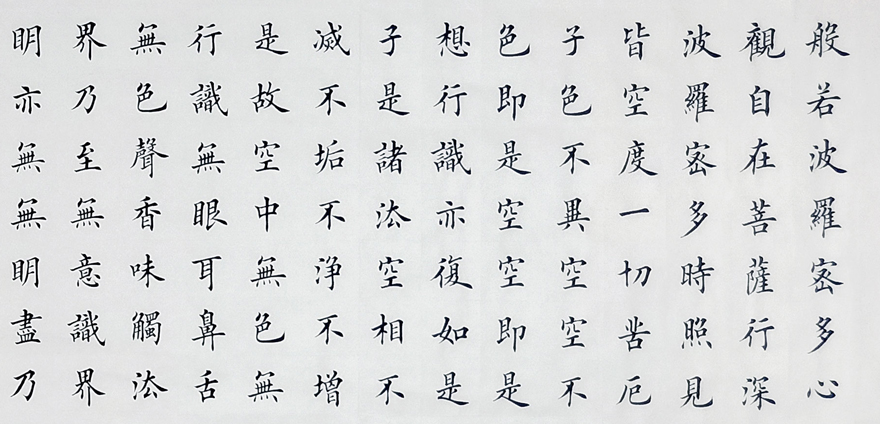 般若波羅密多心
觀自在菩薩行深
波羅密多時照見
皆空度一切苦厄
子色不異空空不
色即是空空即是
想行識亦復如是
子是諸法空相不
滅不垢不淨不增
是故空中無色無
行識無眼耳鼻舌
無色聲香味觸法
界乃至無意識界
明亦無無明盡乃